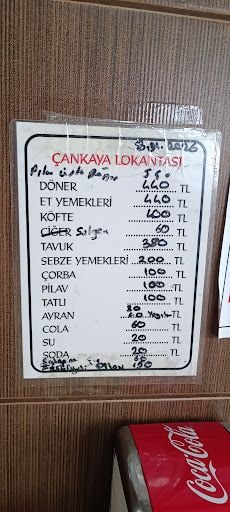 2026
ÇANKAYA LOKANTASI
Pilav üstü
DÖNER 440 TL
ET YEMEKLERİ 440 TL
KÖFTE 400 TL
CİĞER 60 TL
TAVUK 380 TL
SEBZE YEMEKLERİ 200 TL
ÇORBA 100 TL
PİLAV 100 TL
TATLI 100 TL
AYRAN TL
COLA 60 TL
SU 20 TL
SODA 20 TL
Coca-Cola